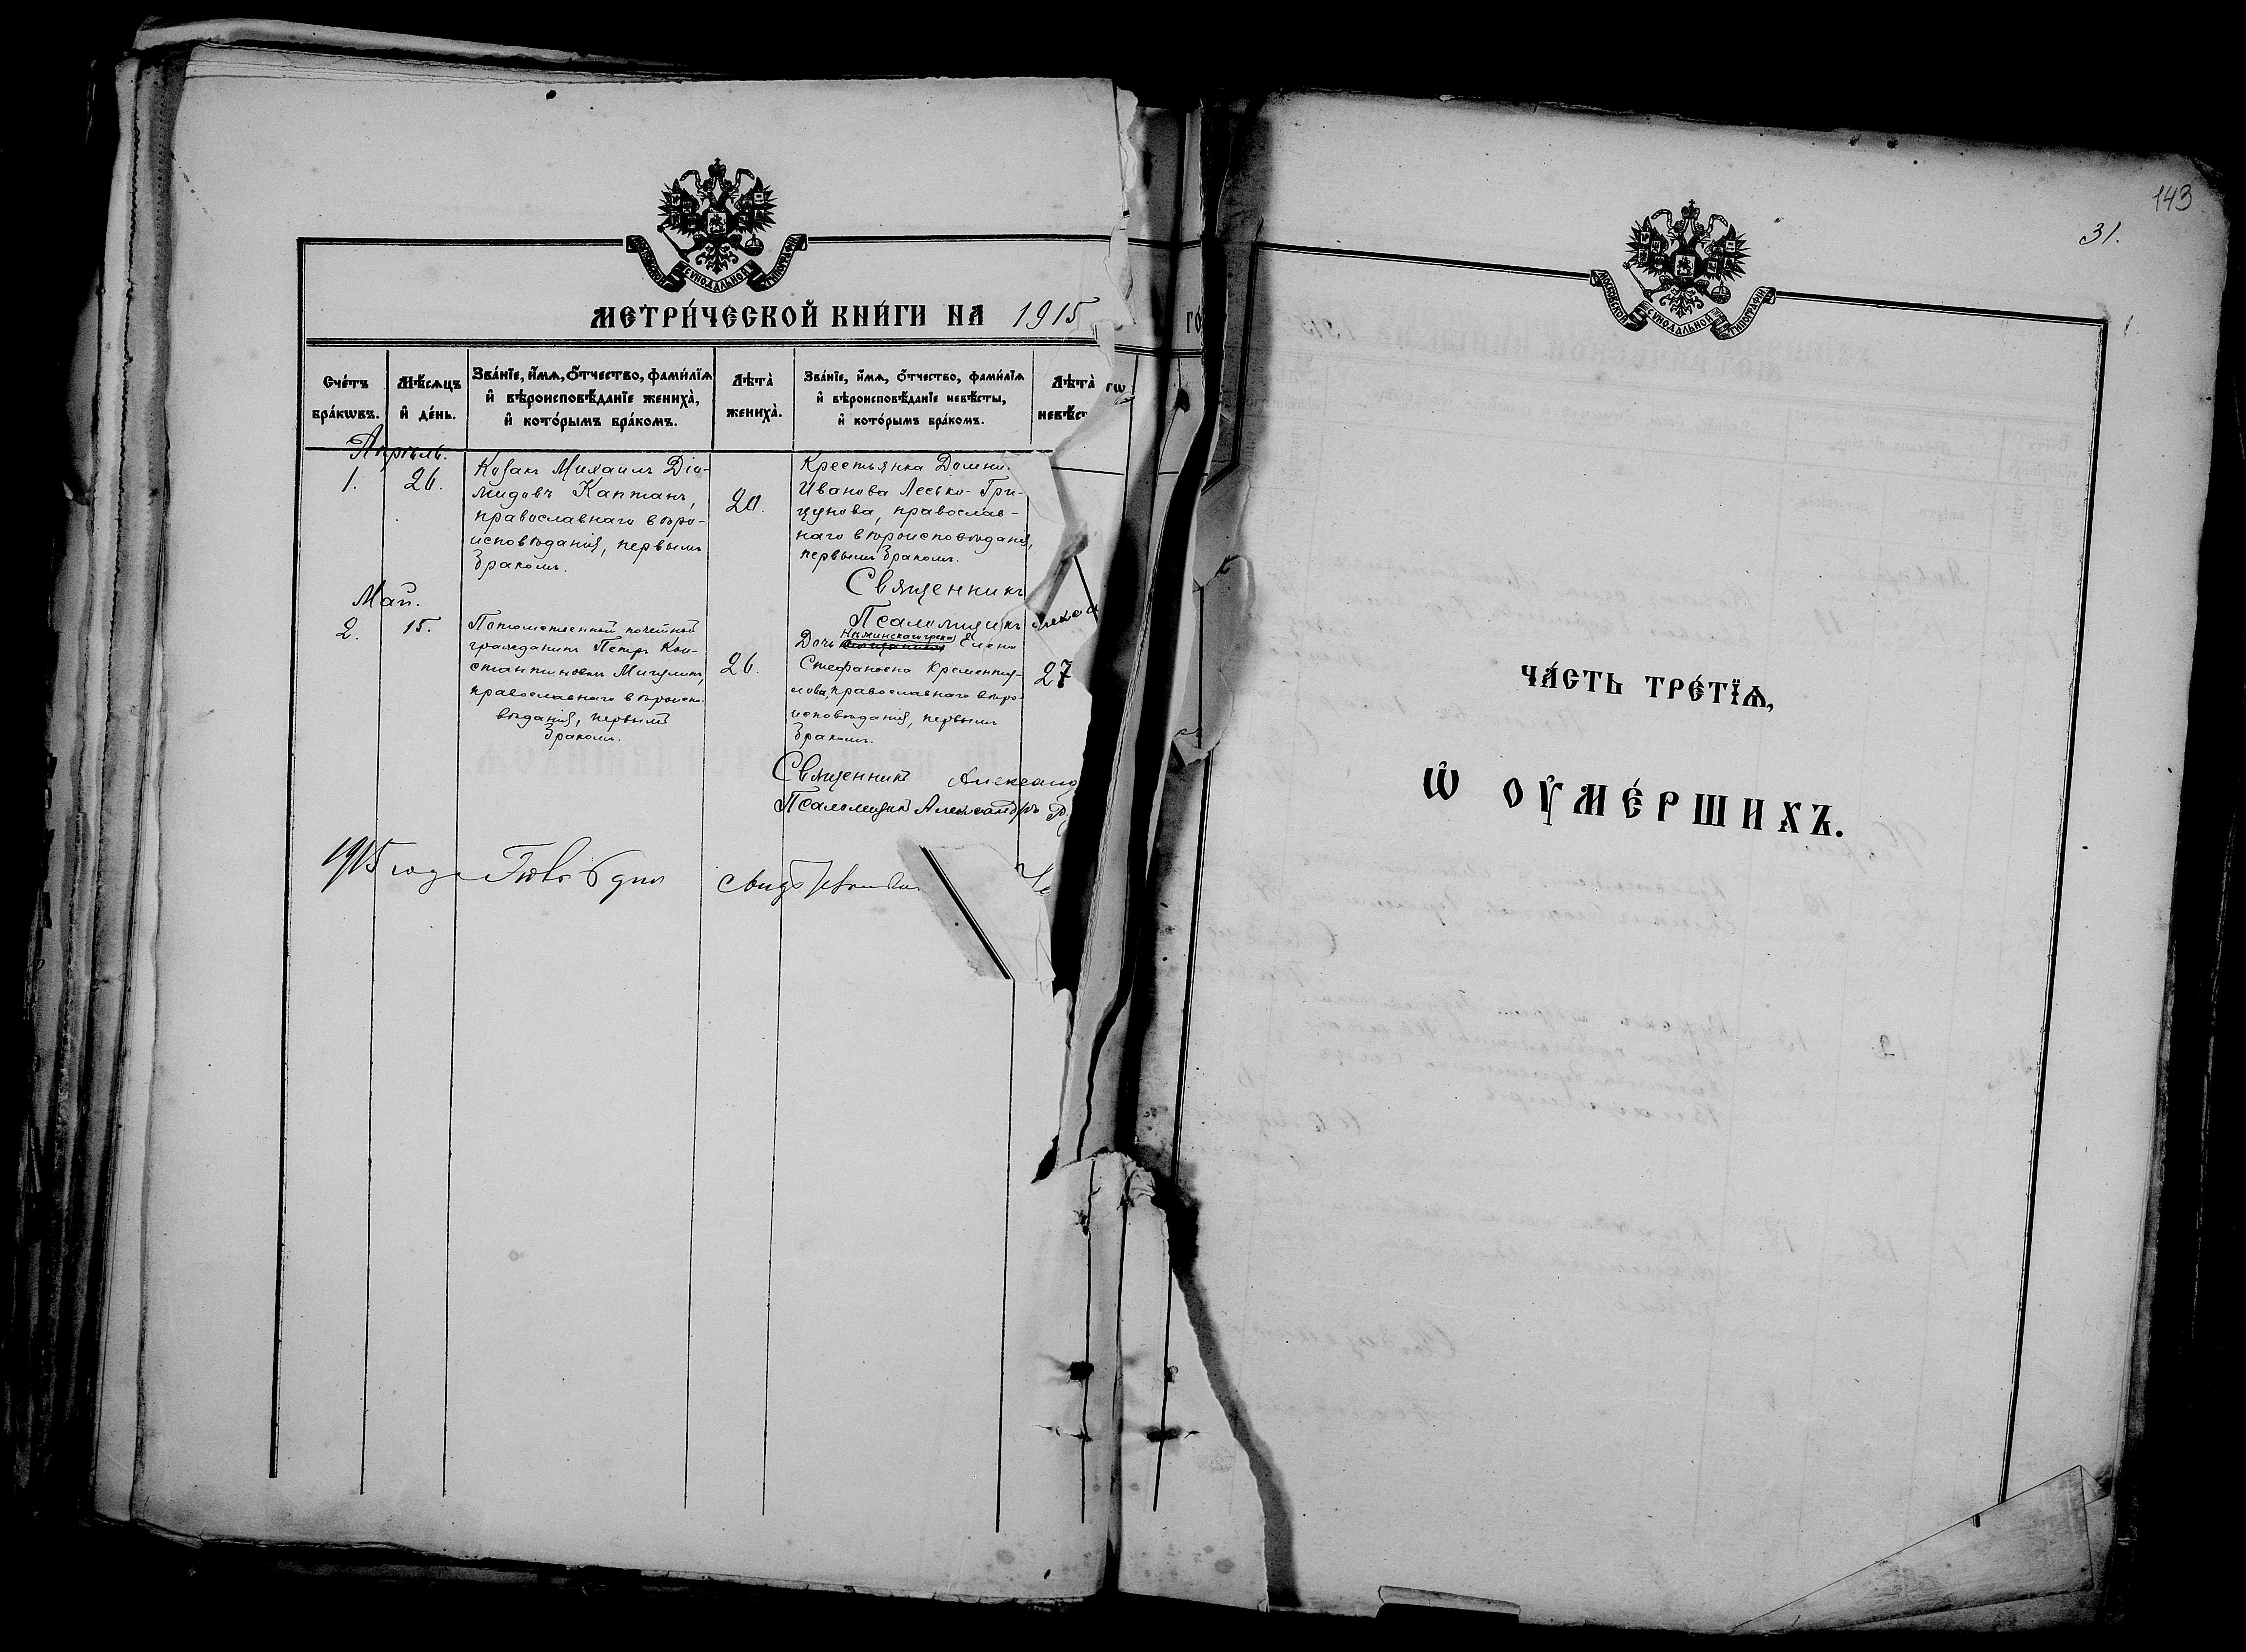 143
31.
МОСКОВСКОЙ СУНОДАЛЬНОЙ ТИПОГРАФІИ
МЕТРИ́ЧЕСКОЙ КНИ́ГИ НА 1915
ГО
Сче́тъ бра́кѡвъ.
Мѣ́сѧцъ и҆ де́нь.
Зва́нїе, и҆́мѧ, ѻ҆́тчество, фами́лїѧ и҆ вѣроисповѣ́данїе жениха̀, и҆ кото́рымъ бра́комъ.
Лѣта̀ жениха̀.
Зва́нїе, и҆́мѧ, ѻ҆́тчество, фами́лїѧ и҆ вѣроисповѣ́данїе невѣ́сты, и҆ кото́рымъ бра́комъ.
Лѣта̀ невѣ́ст
Апрѣль.
1.
26.
Козакъ Михаилъ Діо-
мидовъ Каптанъ,
православнаго вѣро-
исповѣданія, первымъ
бракомъ.
20.
Крестьянка Домни
Иванова Лесько-Гри-
цунова, православ-
наго вѣроисповѣданія,
первымъ бракомъ.
Священникъ
Псаломщикъ Алекса
Май.
2.
15.
Потомственный почетный
гражданинъ Петръ Кон-
стантиновъ Мигулинъ,
православнаго вѣроиспо-
вѣданія, первымъ
бракомъ.
26.
Дочь Нѣжинскаго грека Елена
Стефановна Кременту-
лова, православнаго вѣро-
исповѣданія, первымъ
бракомъ.
27
Священникъ Александ
Псаломщикъ Александръ
1915 года 6 дня
МОСКОВСКОЙ СУНОДАЛЬНОЙ ТИПОГРАФІИ
ЧА́СТЬ ТРЕ́ТЇѦ,
Ѡ҆ ОУ҆МЕ́РШИХЪ.